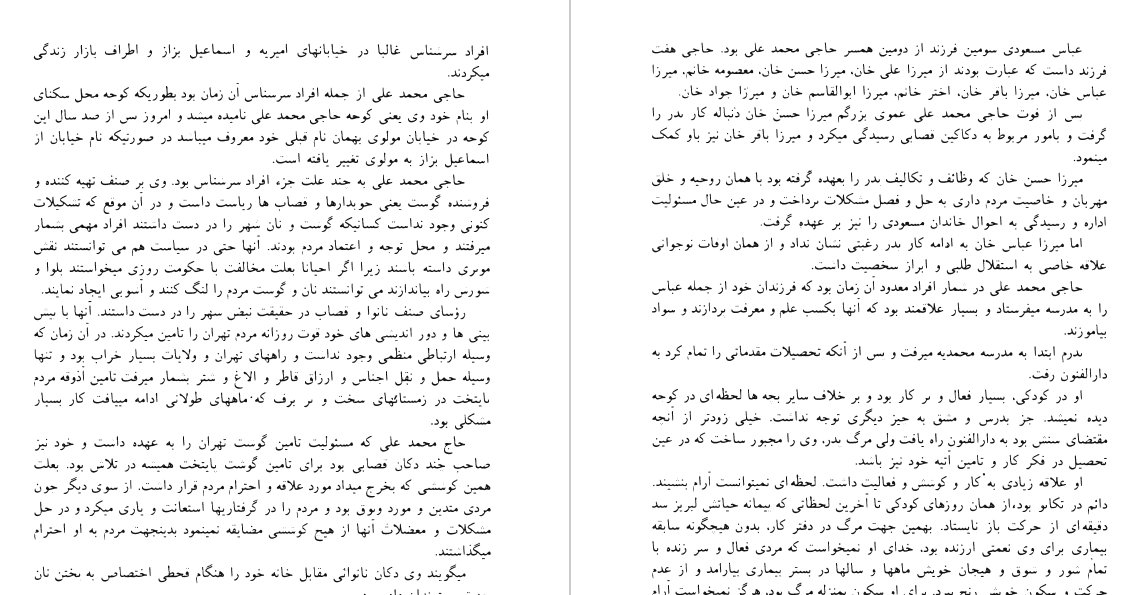 عباس مسعودی سومین فرزند از دومین همسر حاجی محمد علی بود. حاجی هفت
فرزند داست که عبارت بودند از میرزا علی خان، میرزا حسن خان، معصومه خانم، میرزا
عباس خان، میرزا باقر خان، اختر خانم، میرزا ابوالقاسم خان و میرزا جواد خان.
پس از فوت حاجی محمد علی عموی بزرگم میرزا حسن خان دنباله کار پدر را
گرفت و بامور مربوط به دکاکین قصابی رسیدگی میکرد و میرزا باقر خان نیز باو کمک
مینمود.
میرزا حسن خان که وظائف و تکالیف پدر را بعهده گرفته بود با همان روحیه و خلق
مهربان و خاصیت مردم داری به حل و فصل مشکلات پرداخت و در عین حال مسئولیت
اداره و رسیدگی به احوال خاندان مسعودی را نیز بر عهده گرفت.
اما میرزا عباس خان به ادامه کار پدر رغبتی نشان نداد و از همان اوقات نوجوانی
علاقه خاصی به استقلال طلبی و ابراز شخصیت داشت.
حاجی محمد علی در شمار افراد معدود آن زمان بود که فرزندان خود از جمله عباس
را به مدرسه میفرستاد و بسیار علاقمند بود که آنها بکسب علم و معرفت پردازند و سواد
بیاموزند.
پدرم ابتدا به مدرسه محمدیه میرفت و پس از آنکه تحصیلات مقدماتی را تمام کرد به
دارالفنون رفت.
او در کودکی، بسیار فعال و پر کار بود و بر خلاف سایر بچه ها لحظه‌ای در کوچه
دیده نمیشد. جز بدرس و مشق به چیز دیگری توجه نداشت. خیلی زودتر از آنچه
مقتضای سنش بود به دارالفنون راه یافت ولی مرگ پدر، وی را مجبور ساخت که در عین
تحصیل در فکر کار و تامین آتیه خود نیز باشد.
او علاقه زیادی به کار و کوشش و فعالیت داشت. لحظه‌ای نمیتوانست آرام بنشیند.
دائم در تکاپو بود، از همان روزهای کودکی تا آخرین لحظاتی که پیمانه حیاتش لبریز شد
دقیقه‌ای از حرکت باز نایستاد. بهمین جهت مرگ در دفتر کار، بدون هیچگونه سابقه
بیماری برای وی نعمتی ارزنده بود، خدای او نمیخواست که مردی فعال و سر زنده با
تمام شور و شوق و هیجان خویش ماهها و سالها در بستر بیماری بیارامد و از عدم
حرکت و سکون خویش رنج ببرد. برای او سکون بمنزله مرگ بود، هرگز نمیخواست آرام
افراد سرشناس غالبا در خیابانهای امیریه و اسماعیل بزاز و اطراف بازار زندگی
میکردند.
حاجی محمد علی از جمله افراد سرسناس آن زمان بود بطوریکه کوچه محل سکنای
او بنام خود وی یعنی کوچه حاجی محمد علی نامیده میشد و امروز پس از صد سال این
کوچه در خیابان مولوی بهمان نام قبلی خود معروف میباسد در صورتیکه نام خیابان از
اسماعیل بزاز به مولوی تغییر یافته است.
حاجی محمد علی به چند علت جزء افراد سرسناس بود. وی بر صنف تهیه کننده و
فروشنده گوست یعنی چوبدارها و قصاب ها ریاست داست و در آن موقع که تشکیلات
کنونی وجود نداست کسانیکه گوست و نان شهر را در دست داشتند افراد مهمی بشمار
میرفتند و محل توجه و اعتماد مردم بودند. آنها حتی در سیاست هم می توانستند نقش
موثری داسته باسند زیرا اگر احیانا بعلت مخالفت با حکومت روزی میخواستند بلوا و
سورس راه بیاندازند می توانستند نان و گوست مردم را لنگ کنند و آسوبی ایجاد نمایند.
رؤسای صنف نانوا و قصاب در حقیقت نبض شهر را در دست داستند. آنها با پیش
بینی ها و دور اندیشی های خود قوت روزانه مردم تهران را تامین میکردند. در آن زمان که
وسیله ارتباطی منظمی وجود نداست و راههای تهران و ولایات بسیار خراب بود و تنها
وسیله حمل و نقل اجناس و ارزاق قاطر و الاغ و شتر بشمار میرفت تامین آذوقه مردم
پایتخت در زمستانهای سخت و پر برف که ماههای طولانی ادامه مییافت کار بسیار
مشکلی بود.
حاج محمد علی که مسئولیت تامین گوست تهران را به عهده داست و خود نیز
صاحب چند دکان قصابی بود برای تامین گوشت پایتخت همیشه در تلاش بود. بعلت
همین کوششی که بخرج میداد مورد علاقه و احترام مردم قرار داست. از سوی دیگر چون
مردی متدین و مورد وثوق بود و مردم را در گرفتاریها استعانت و یاری میکرد و در حل
مشکلات و معضلات آنها از هیچ کوششی مضایقه نمینمود بدینجهت مردم به او احترام
میگذاشتند.
میگویند وی دکان نانوائی مقابل خانه خود را هنگام قحطی اختصاص به پختن نان